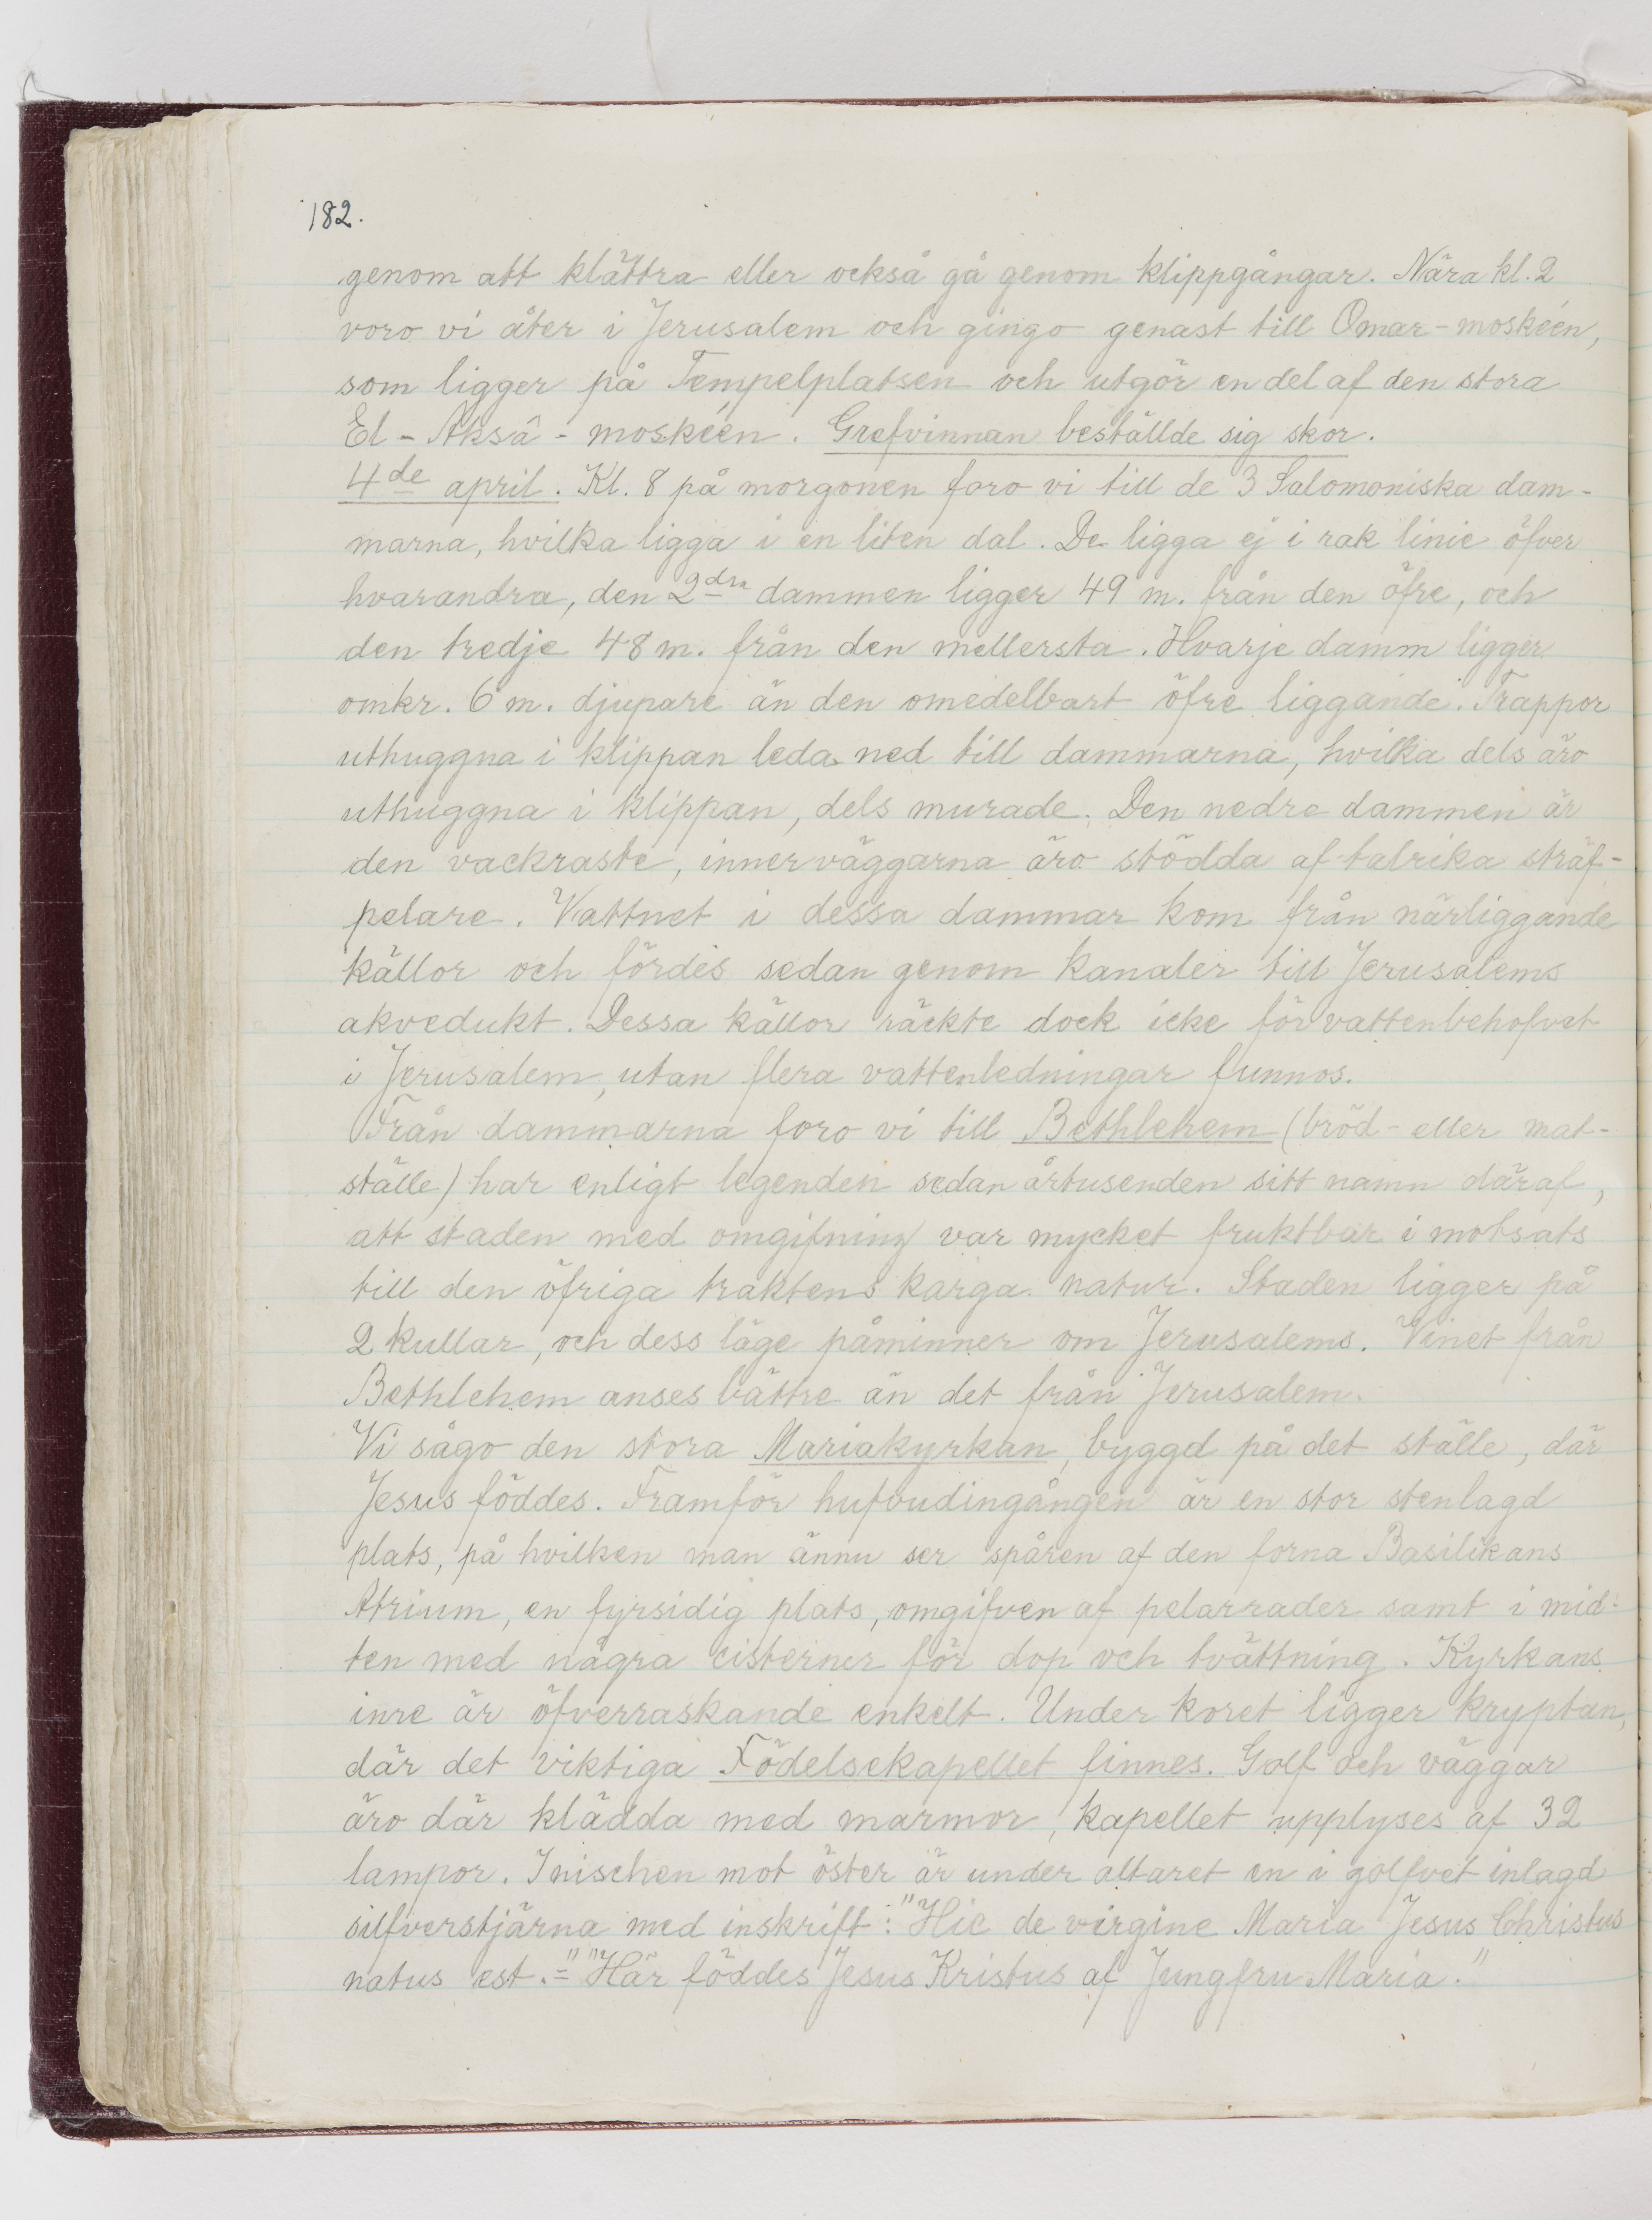 182.
genom att klättra eller också gå genom klippgångar. Nära kl. 2
voro vi åter i Jerusalem och gingo genast till Omar-moskéen,
som ligger på Tempelplatsen och utgör en del af den stora
El-Aksâ-moskéen. Grefvinnan beställde sig skor.
4de april. Kl. 8 på morgonen foro vi till de 3 Salomoniska dam-
marna, hvilka ligga i en liten dal. De ligga ej i rak linie öfver
hvarandra, den 2dra dammen ligger 49 m. från den öfre, och
den tredje 48 m. från den mellersta. Hvarje damm ligger
omkr. 6 m. djupare än den omedelbart öfre liggande. Trappor
uthuggna i klippan leda ned till dammarna, hvilka dels äro
uthuggna i klippan, dels murade. Den nedre dammen är
den vackraste, innerväggarna äro stödda af talrika sträf-
pelare. Vattnet i dessa dammar kom från närliggande
källor och fördes sedan genom kanaler till Jerusalems
akvedukt. Dessa källor räckte dock icke för vattenbehofvet
i Jerusalem, utan flera vattenledningar funnos.
Från dammarna foro vi till Bethlehem (bröd- eller mat-
ställe) har enligt legenden sedan årtusenden sitt namn däraf,
att staden med omgifning var mycket fruktbar i motsats
till den öfriga traktens karga natur. Staden ligger på
2 kullar, och dess läge påminner om Jerusalems. Vinet från
Bethlehem anses bättre än det från Jerusalem.
Vi sågo den stora Mariakyrkan, byggd på det ställe, där
Jesus föddes. Framför hufvudingången är en stor stenlagd
plats, på hvilken man ännu ser spåren af den forna Basilikans
Atrium, en fyrsidig plats, omgifven af pelarrader samt i mid-
ten med några cisterner för dop och tvättning. Kyrkans
inre är öfverraskande enkelt. Under koret ligger kryptan,
där det viktiga Födelsekapellet finnes. Golf och väggar
äro där klädda med marmor, kapellet upplyses af 32
lampor. I nischen mot öster är under altaret en i golfvet inlagd
silfverstjärna med inskrift: "Hic de virgine Maria Jesus Christus
natus est."="Här föddes Jesus Kristus af Jungfru Maria."